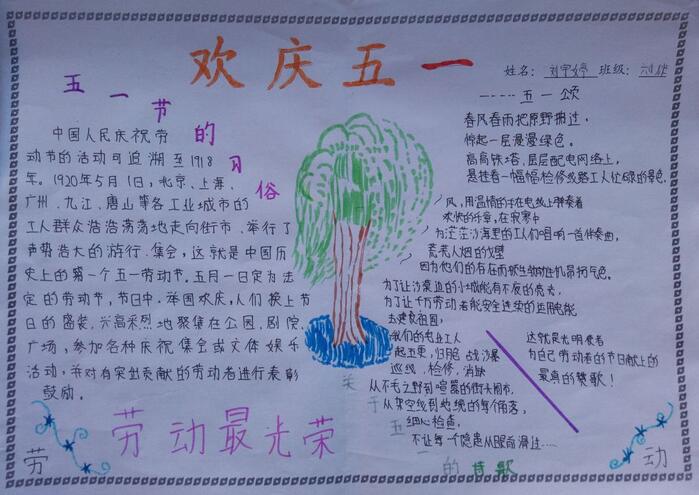 欢庆五一
姓名: 刘宇婷 班级:
五一节的习俗
中国人民庆祝劳
动节的活动可追溯至1918
年。1920年5月1日,北京、上海、
广州、九江、唐山等各工业城市的
工人群众浩浩荡荡地走向街市、举行了
声势浩大的游行、集会,这就是中国历
史上的第一个五一劳动节。五月一日定为法
定的劳动节,节日中,举国欢庆,人们换上节
日的盛装,兴高采烈地聚集在公园、剧院
广场,参加各种庆祝集会或文体娱乐
活动,并对有突出贡献的劳动者进行表彰
鼓励。
劳动最光荣
劳
-----五一颂
春风春雨把原野拂过,
惊起一层漫漫绿色。
高高铁塔,层层配电网络上,
是挂着一幅幅检修线路工人忙碌的景色.
风,用温情的手在电线上弹奏着
欢快的乐章,在寂寞中
为茫茫沙海里的工人们唱响一首伴奏曲,
荒芜人烟的戈壁
因为他们的存在而顿生勃勃生机昂扬气色。
为了让沙漠边的小城能有不夜的亮光,
为了让千万劳动者能安全连续的运用电能
去建设祖国,
我们的电业工人
起五更,归随,战沙漠
巡线、检修、消缺
从不毛之野到喧嚣的街大闹市,
从架空线到地缆的每个角落,
细心检查,
不让每一个隐患从眼前滑过......
这就是光明使者
为自己劳动者的节日献上的
最真的赞歌!
关于五一的诗歌
动